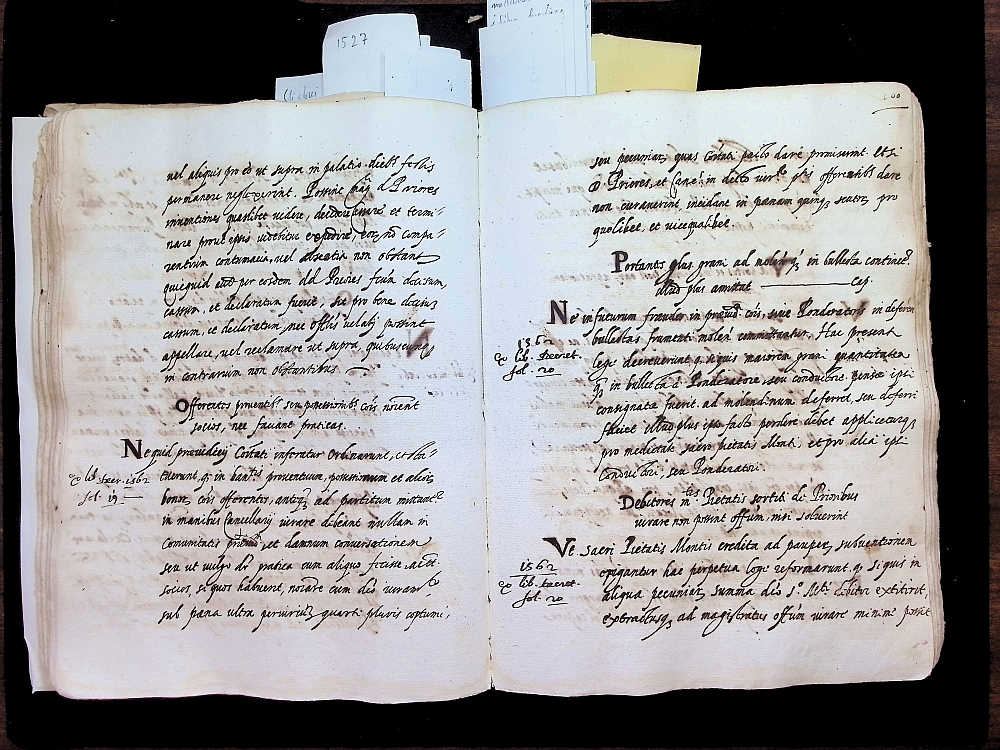 1527
vel aliquis pro eo ut supra in palatio diebs festis
permanere neglexerint. Possint mag. d. Priores
inventiones quaslibet videre, declarare et termi-
nare prout ipsis videbitur expedire, eorz no compa-
rentium contumacia, vel absentia non obstant
quicquid enī per eosdem dd Priores sicuū docisum,
cassum, et declaratum fuerit, sit pro bene deciso
cassum, et declaratum, nec offus velatij possint
appellare, vel reclamare ut supra, quibuscunqz
in contrarium non obstantibus
Offerentes proventibs seu possessionibs cois noīent
socios, nec faciant praticas.
Ne quid praeiudicij Civitati inferatur Ordinarunt, et sta-
tuerunt, q in proventuum, possessionum et alioz
bonor, cois offerentes, anteqz ad partitum mittantr
in manibus Cancellarij iurare debeant nullam in
Comunitatis et damnum conversationem
seu ut vulgo dr pratica cum aliquo fecisse, at
socios, si quos habuerit, noīare cum dio iuram.to
sub paena ultra periurium quarte pluris coptumi
lib. decr. 1562
fol. 19
100
seu pecuniaz, quas Civitati pacto dare promiserint. Et si
d. Priores, et Canc. in dicto iurto offerentibs dare
non curaverint, incidant in paenam quinqz scutor, pro
quolibet, et vice qualibet.
Portantes plus grani ad molen qz in bulletta continetr
illud plus amittat Cap.
Ne in futurum fraudes in cois, sive Ponderatoris in deferēn
bullettas frumenti molēn committantur, Hac presenti
lege decreverunt q, siquis maiorem grani quantitatem
qz in bulletta a Ponderatore, seu conductore pensae ipsi
consignatae fuerit, ad molendinum deferret, seu deferri
faciet illud plus ipso facto perdere debet appliceturqz
pro medietate sacro pietatis Monti, et pro alia ipsi
Conductori, seu Ponderatori.
1562
lib. decret.
fol. 20
Debitores m.tis Pietatis sortiti de Prioribus
iurare non possint offum, nisi solverint
Ve. Sacri Pietatis Montis credita ad pauper, subventionem
exigantur hac perpetua lege reformarunt q, Si quis in
aliqua pecuniaz summa dio S. M.ti debitor extiterit,
extractusqz ad magistratus offum iurare minime possit
1562
lib. decret.
fol. 20